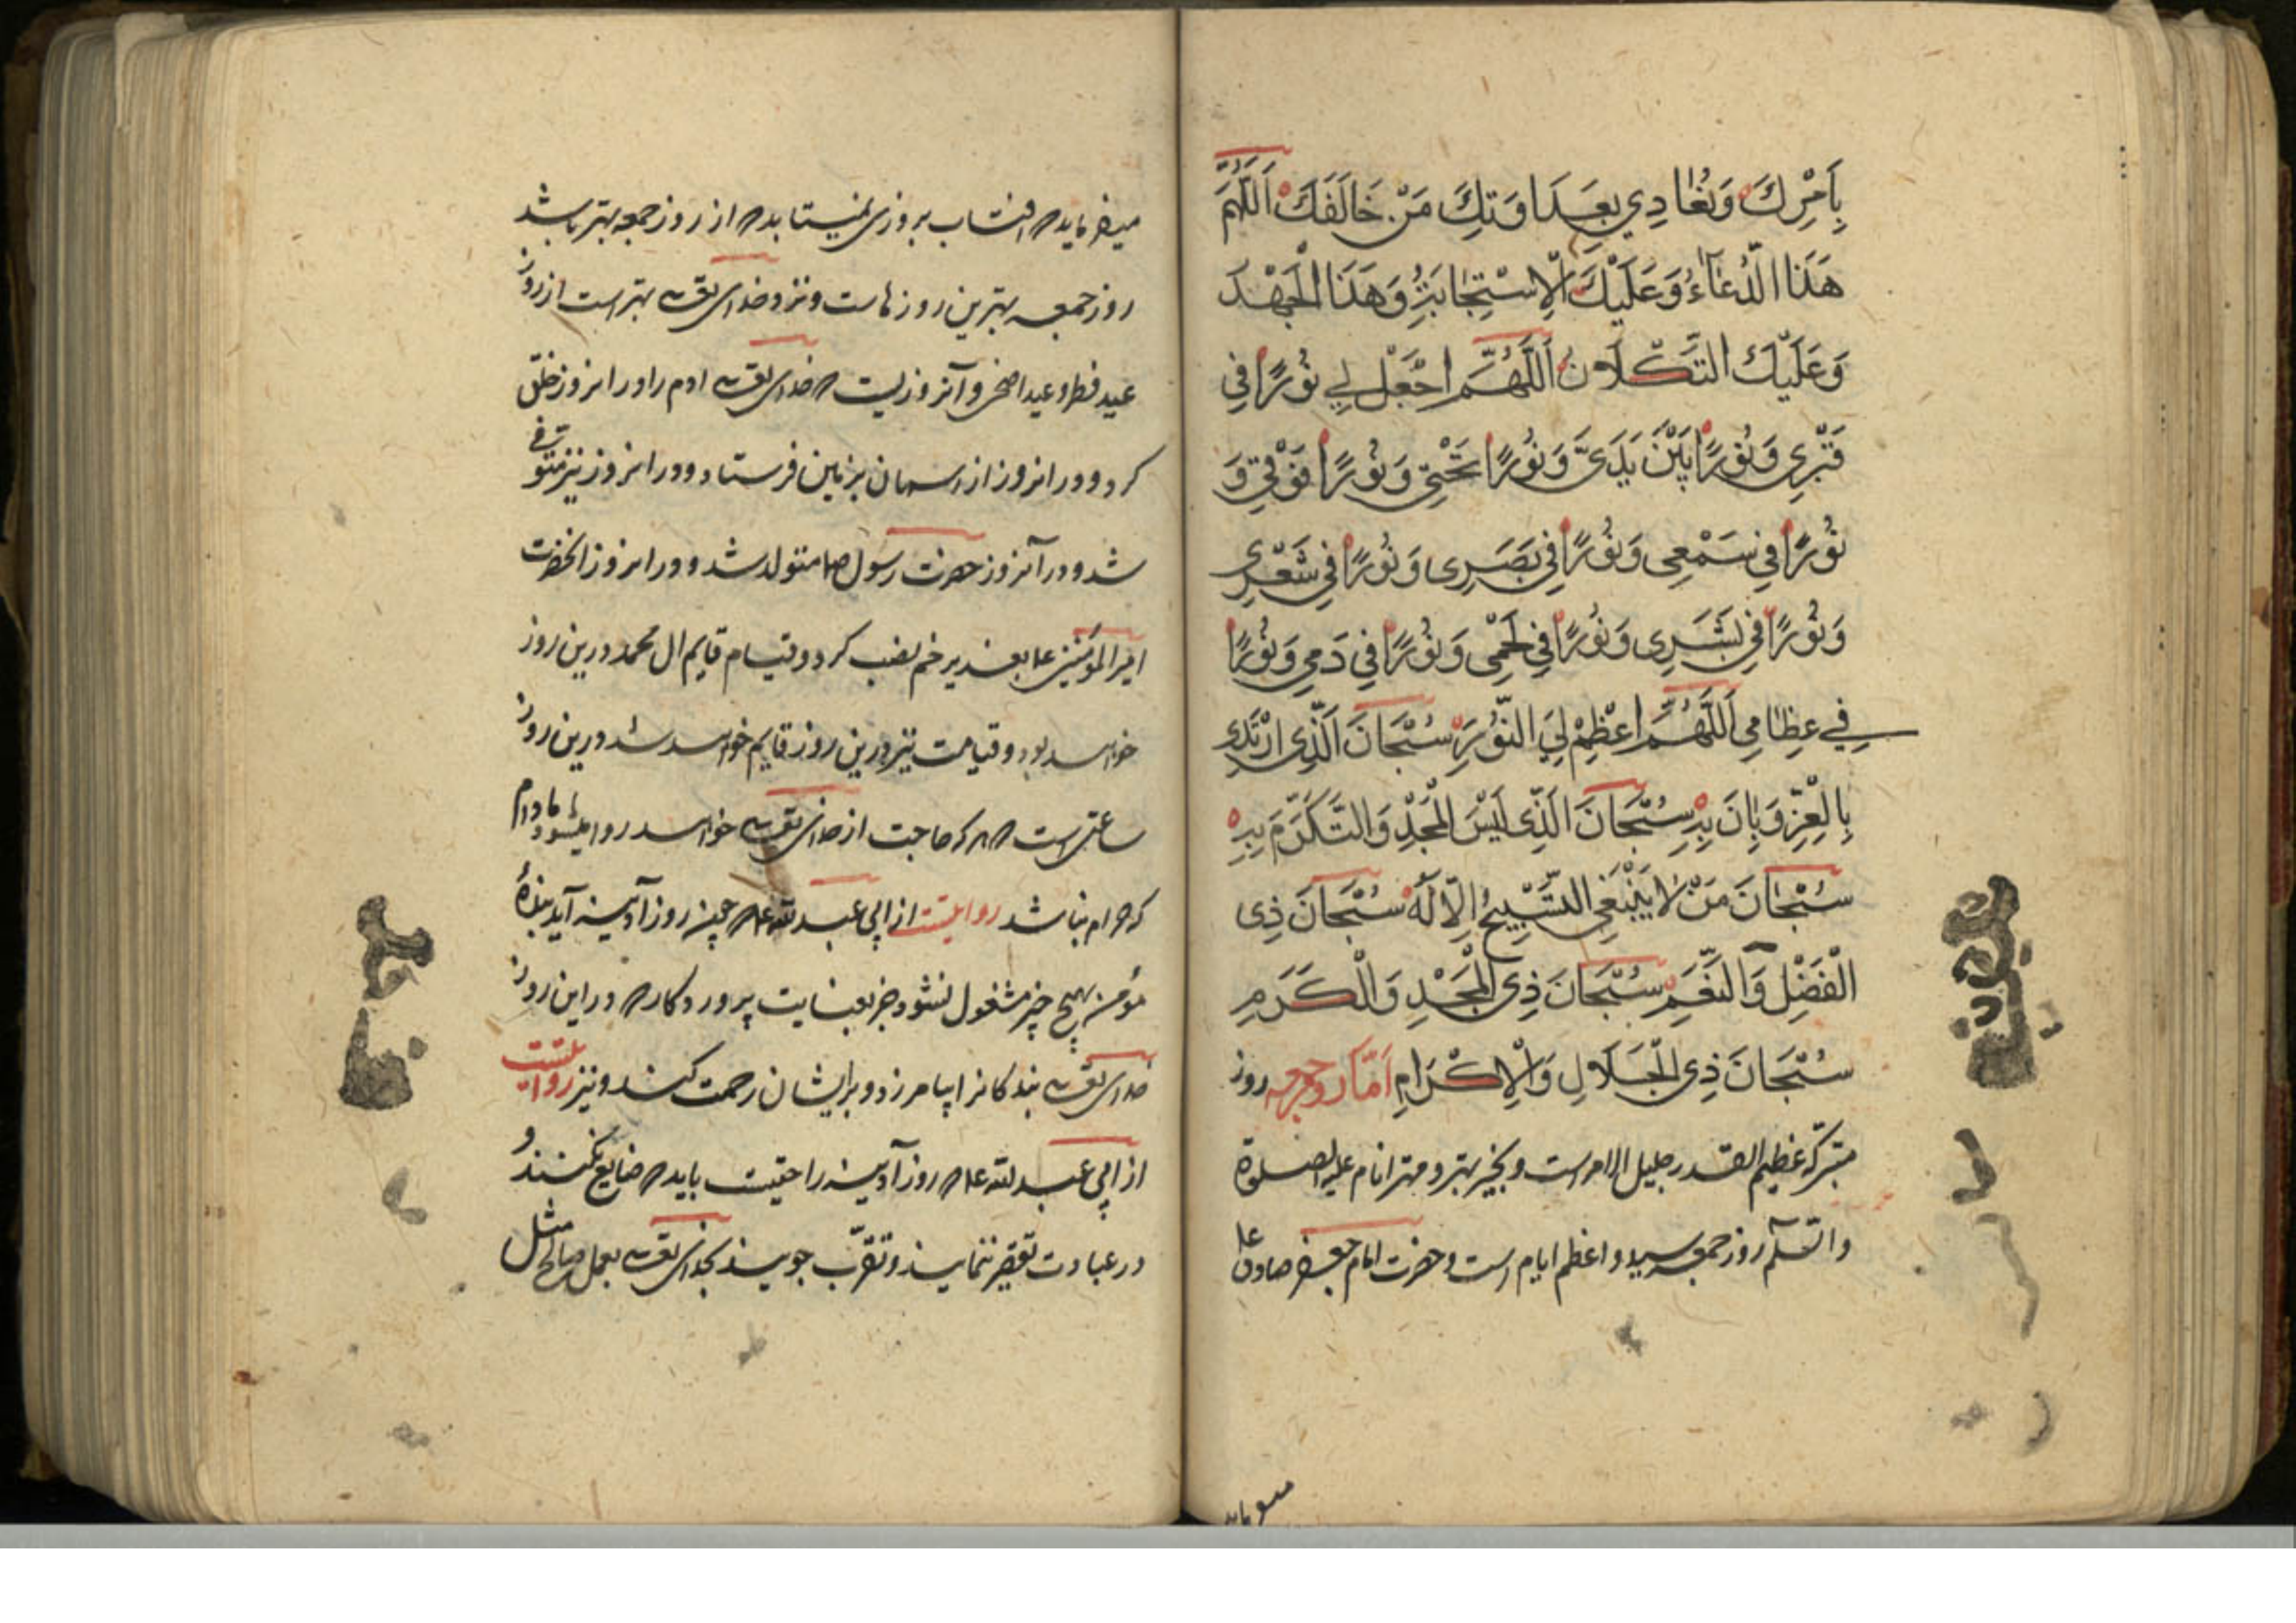 بِاَمْرِكَ وَنُعَادِي بِعَدَاوَتِكَ مَنْ خَالَفَكَ اَللّٰهُمَّ
هَذَا الدُّعَاءُ وَعَلَيْكَ الْاِسْتِجَابَةُ وَهَذَا الْجَهْدُ
وَعَلَيْكَ التُّكْلَانُ اَللّٰهُمَّ اجْعَلْ لِي نُورًا فِي
قَبْرِي وَنُورًا بَيْنَ يَدَيَّ وَنُورًا تَحْتِي وَنُورًا فَوْقِي وَ
نُورًا فِي سَمْعِي وَنُورًا فِي بَصَرِي وَنُورًا فِي شَعْرِي
وَنُورًا فِي بَشَرِي وَنُورًا فِي لَحْمِي وَنُورًا فِي دَمِي وَنُورًا
فِي عِظَامِي اَللّٰهُمَّ اَعْظِمْ لِيَ النُّورَ سُبْحَانَ الَّذِي ارْتَدَى
بِالْعِزِّ وَبَانَ بِهِ سُبْحَانَ الَّذِي لَبِسَ الْمَجْدَ وَالتَّكَرُّمَ بِهِ
سُبْحَانَ مَنْ لَا يَنْبَغِي التَّسْبِيحُ اِلَّا لَهُ سُبْحَانَ ذِي
الْفَضْلِ وَالنِّعَمِ سُبْحَانَ ذِي الْمَجْدِ وَالْكَرَمِ
سُبْحَانَ ذِي الْجَلَالِ وَالْاِكْرَامِ اَمَّا روز جمعه روز
متبرکه عظیم القدر جلیل الامر است و بخیر بهتر و مهتر انام علیه الصلوة
والسلم روز جمعه سید و اعظم ایام است و حضرت امام جعفر صادق ع
میفرماید
میفرماید که افتاب بروزی نمیتابد که از روز جمعه بهتر باشد
روز جمعه بهترین روزهاست و نزد خدای تعالی بهتر است از روز
عید فطر و عید اضحی و آنروزیست که خدای تعالی ادم را در انروز خلق
کرد و در انروز از اسمان بزمین فرستاد و در انروز نیز متوفی
شد و در آنروز حضرت رسول صلعم متولد شد و در انروز انحضرت
امیرالمؤمنین ع را بغدیر خم نصب کرد و قیام قایم ال محمد درین روز
خواهد بود و قیامت نیز درین روز قایم خواهد شد درین روز
ساعتی است که هر که حاجت از خدای تعالی خواهد روا میشود مادام
که حرام نباشد روایتست از ابی عبدالله ع که چون روز آدینه آید بندهٔ
مؤمن بهیچ چیز مشغول نشود جز بعبادت پروردکار که در این روز
خدای تعالی بندکانرا بیامرزد و برایشان رحمت کند و نیز روایتست
از ابی عبدالله ع که روز آدینه را حقیست باید که ضایع نکنند و
در عبادت تقصیر ننمایند و تقرّب جویند بخدای تعالی بعمل صالح مثل